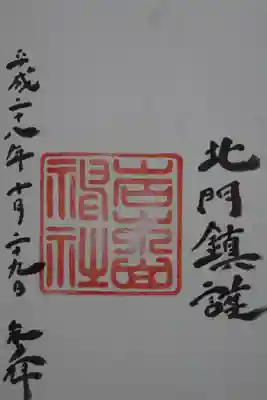 北門鎮護
神社
平成二十八年十月二十九日 奉拝